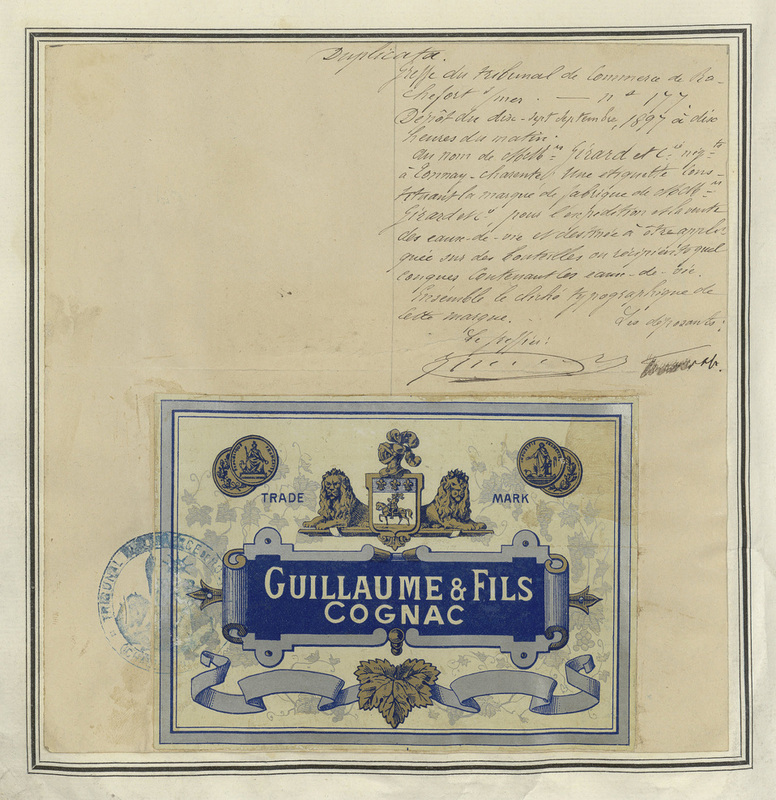 Duplicata.
Greffe du tribunal de Commerce de Ro-
chefort s/mer. — n° 177
Dépôt du dix-sept septembre, 1897 à dix
heures du matin.
Au nom de MM.rs Girard et C.ie nég.ts
à Tonnay-Charente, Une etiquette Cons-
tituant la marque de fabrique de MM.rs
Girard et C.ie pour l'expédition et la vente
des eaux-de-vie et destinée à être appli-
quée sur des bouteilles ou récipients quel
conques Contenant les eaux-de-vie.
Ensemble le cliché typographique de
cette marque.
Les déposants:
Le greffier:
TRADE
MARK
GUILLAUME & FILS
COGNAC
TRIBUNAL DE COMMERCE